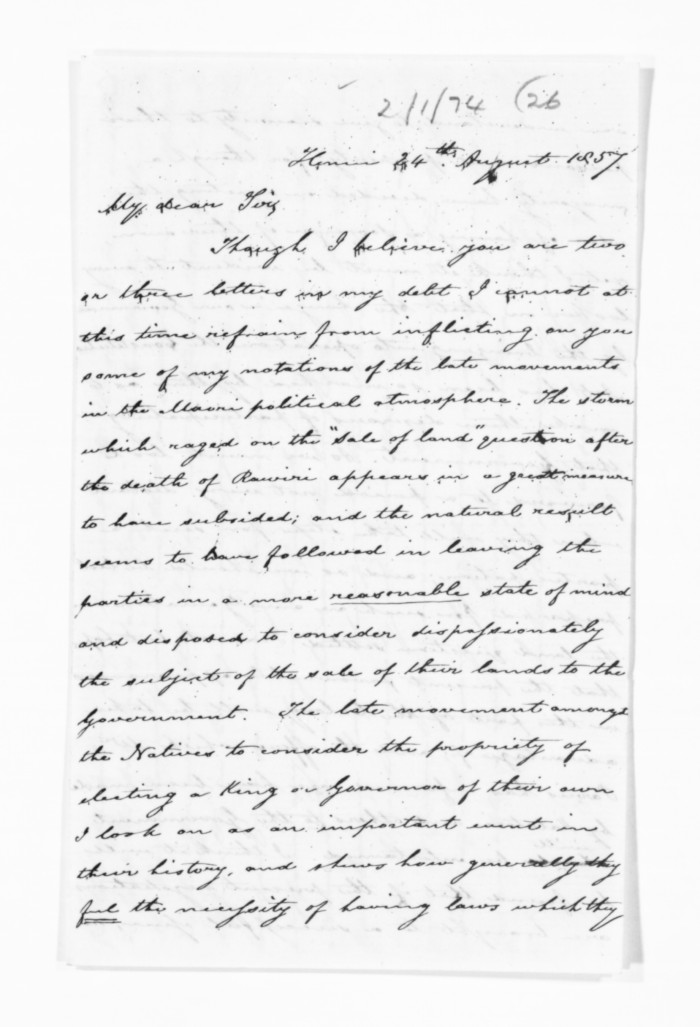 2/1/74 (26
Henui 24th August 1857.
My Dear Sir,
Though I believe you are two
or three letters in my debt I cannot at
this time refrain from inflicting on you
some of my notations of the late movements
in the Maori political atmosphere. The storm
which raged on the "sale of land" question after
the death of Rawiri appears in a great measure
to have subsided; and the natural result
seems to have followed in leaving the
parties in a more reasonable state of mind
and disposed to consider dispassionately
the subject of the sale of their lands to the
Government. The late movement amongst
the Natives to consider the propriety of
electing a King or Governor of their own
I look on as an important event in
their history, and shews how generally they
feel the necessity of having laws which they